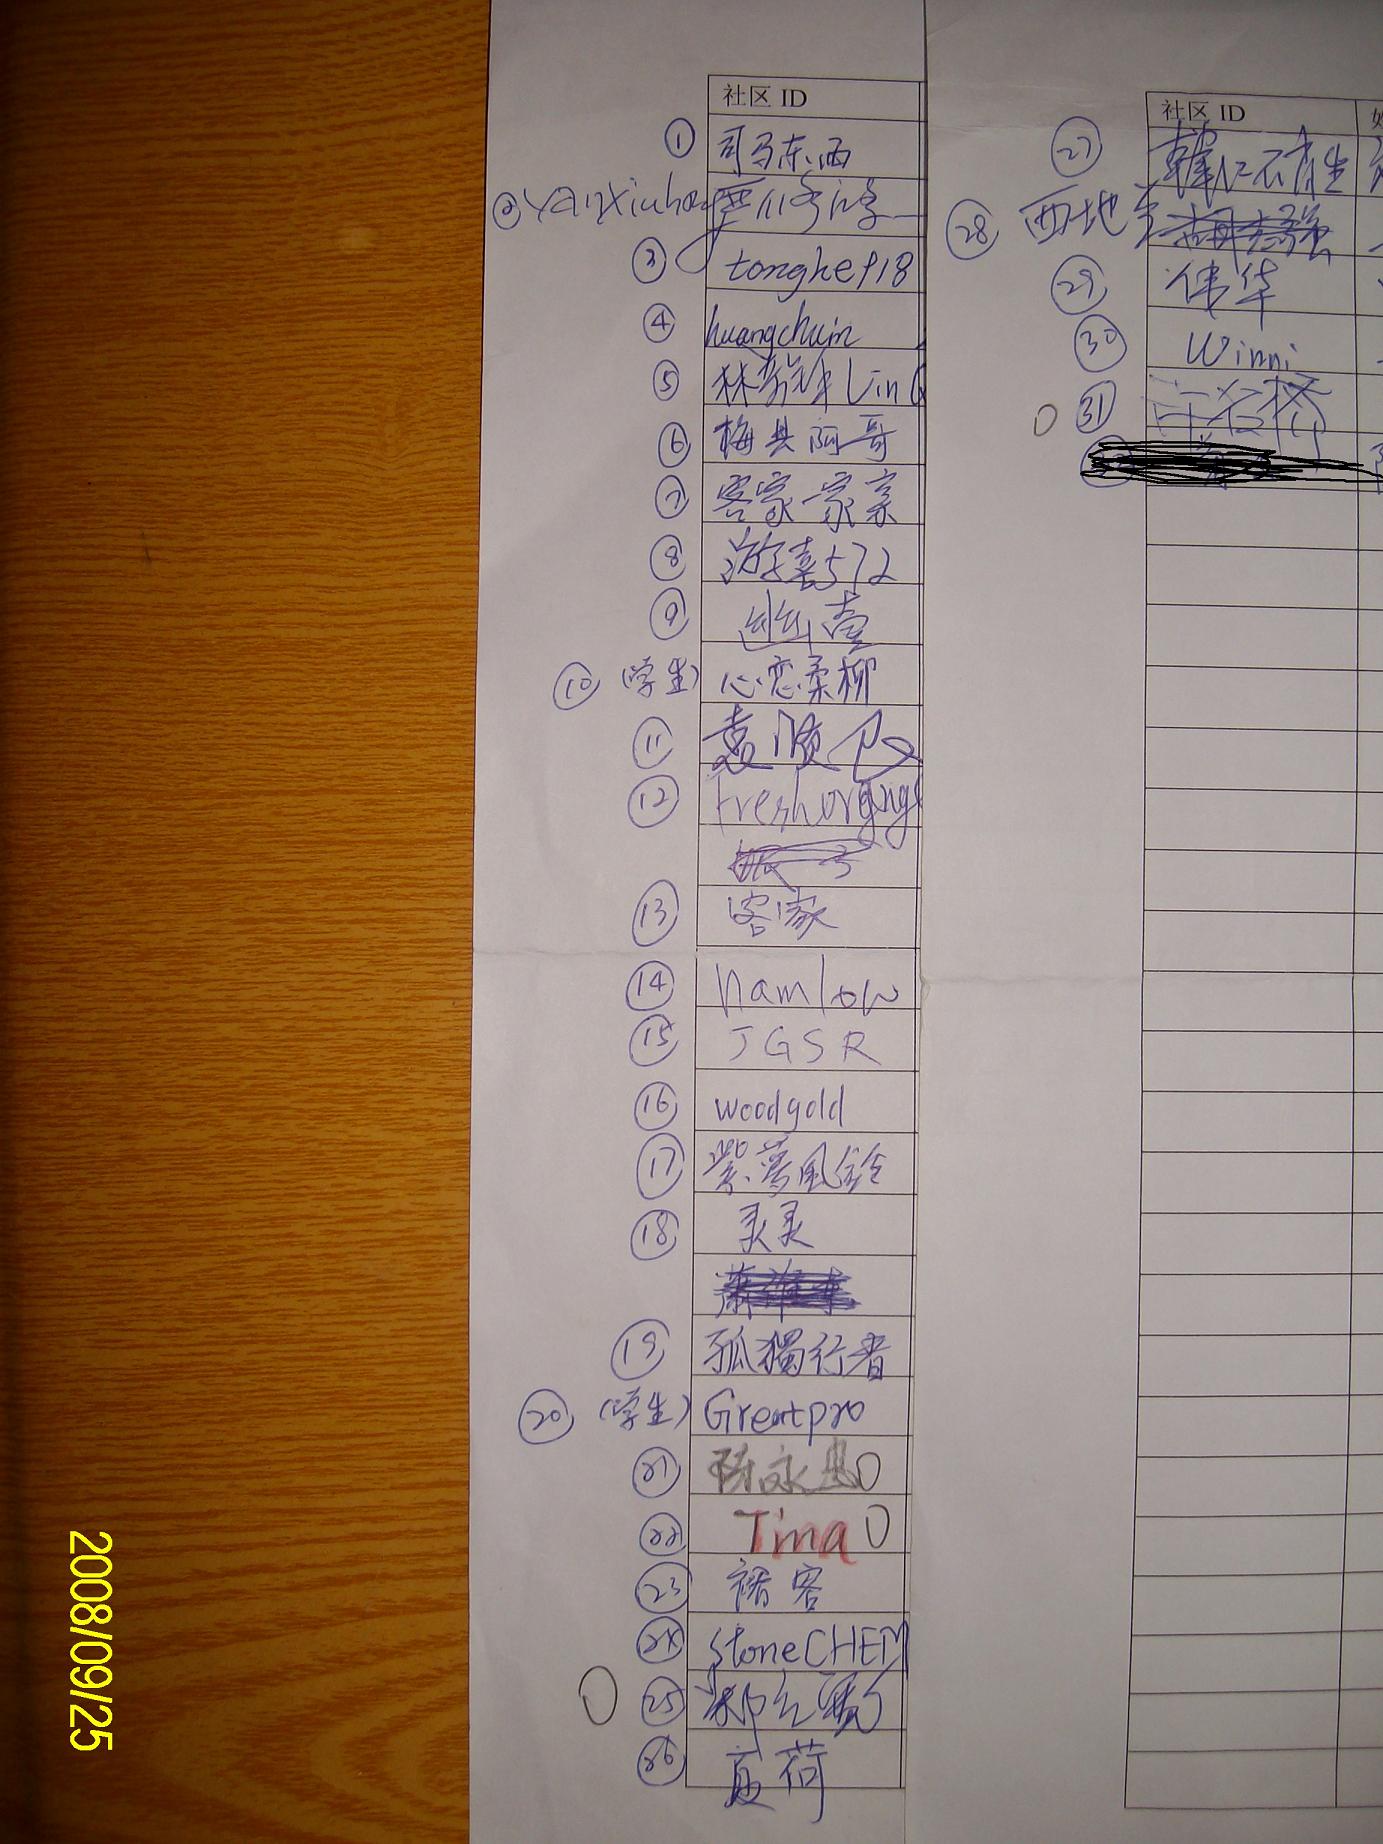 社区 ID
① 司马东西
② yanxiuhong
③ tonghe918
④ huangchuin
⑤ 林 Lin
⑥ 梅县阿哥
⑦ 客家一家亲
⑧ 游熹572
⑨ 幽壹
⑩ (学生) 心恋柔柳
⑪ 袁顺
⑫ freshorgngs
⑬ 客家
⑭ hamlow
⑮ JGSR
⑯ woodgold
⑰ 紫薇風鈴
⑱ 灵灵
⑲ 孤獨行者
⑳ (学生) Greatpro
21 陈永
22 Tina
23 禤客
24 StoneCHEM
25
26 夏荷
社区 ID
27 韓江石有生
28 西地
29 伟华
30 Winni
31 许名桥
2008/09/25